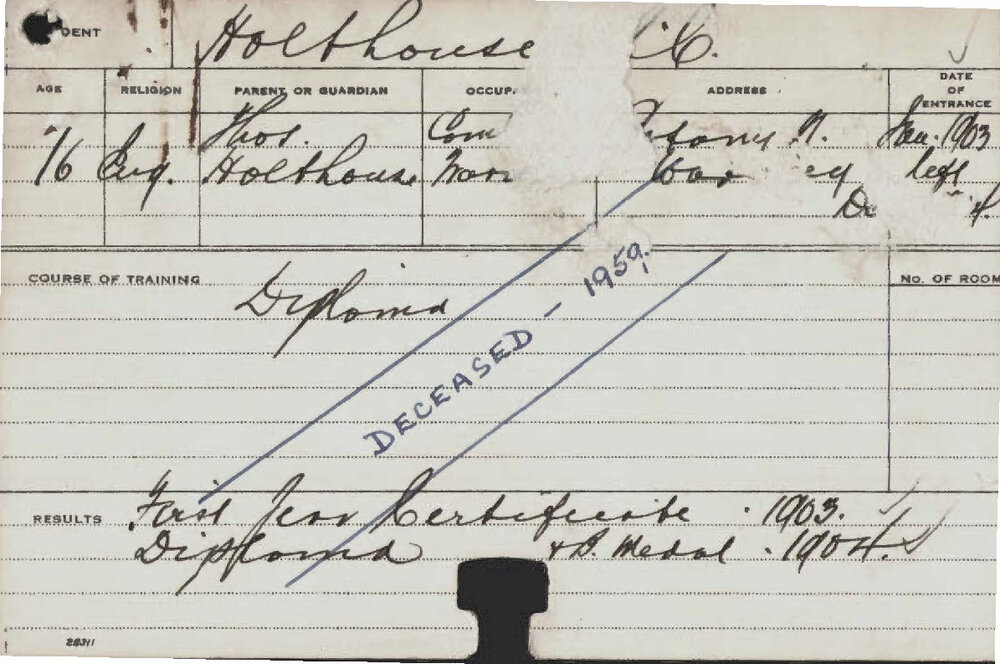 DENT Holthouse C.
AGE RELIGION PARENT OR GUARDIAN OCCUP. ADDRESS DATE OF ENTRANCE
16 Eng. Thos. Holthouse Com Jan. 1903
left
COURSE OF TRAINING Diploma No. OF ROOM
DECEASED - 1959.
RESULTS First Year Certificate . 1903.
Diploma & B. Medal . 1904.